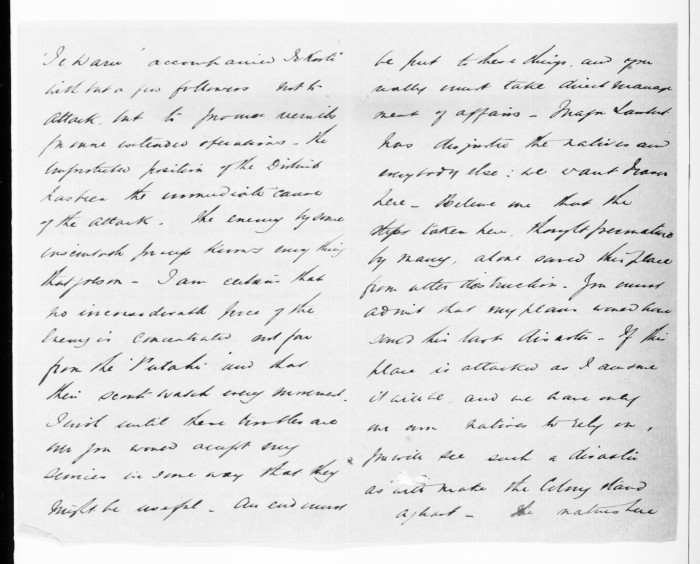 'Te Waru' accompanied Te Kooti
with but a few followers not to
attack, but to procure recruits
for more extended operations - The
unprotected position of the District
has been the immediate cause
of the attack - The enemy by some
process knows every thing
that goes on - I am certain that
no inconsiderable force of the
Enemy is concentrated not far
from the 'Putahi' and that
their scouts watch every movement.
I wish until these troubles are
over you would accept my
services in some way that they
might be useful - An end must
be put to these things, and you
really must take direct manage
ment of affairs - Major Lambert
has disgusted the natives and
everybody else: we want
here - Believe me that the
steps taken here, thought premature
by many, alone saved this place
from utter destruction - You must
admit that my plans would have
saved this last disaster - If this
place is attacked as I am sure
it will be, and we have only
our own natives to rely on,
you will see such a disaster
as will make the Colony stand
aghast - The natives here